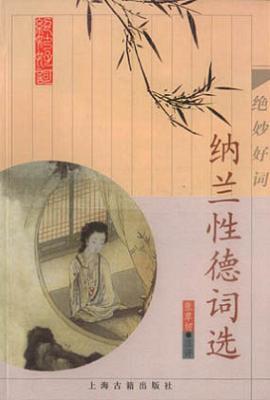 绝妙好词
绝妙好词
纳兰性德词选
上海古籍出版社